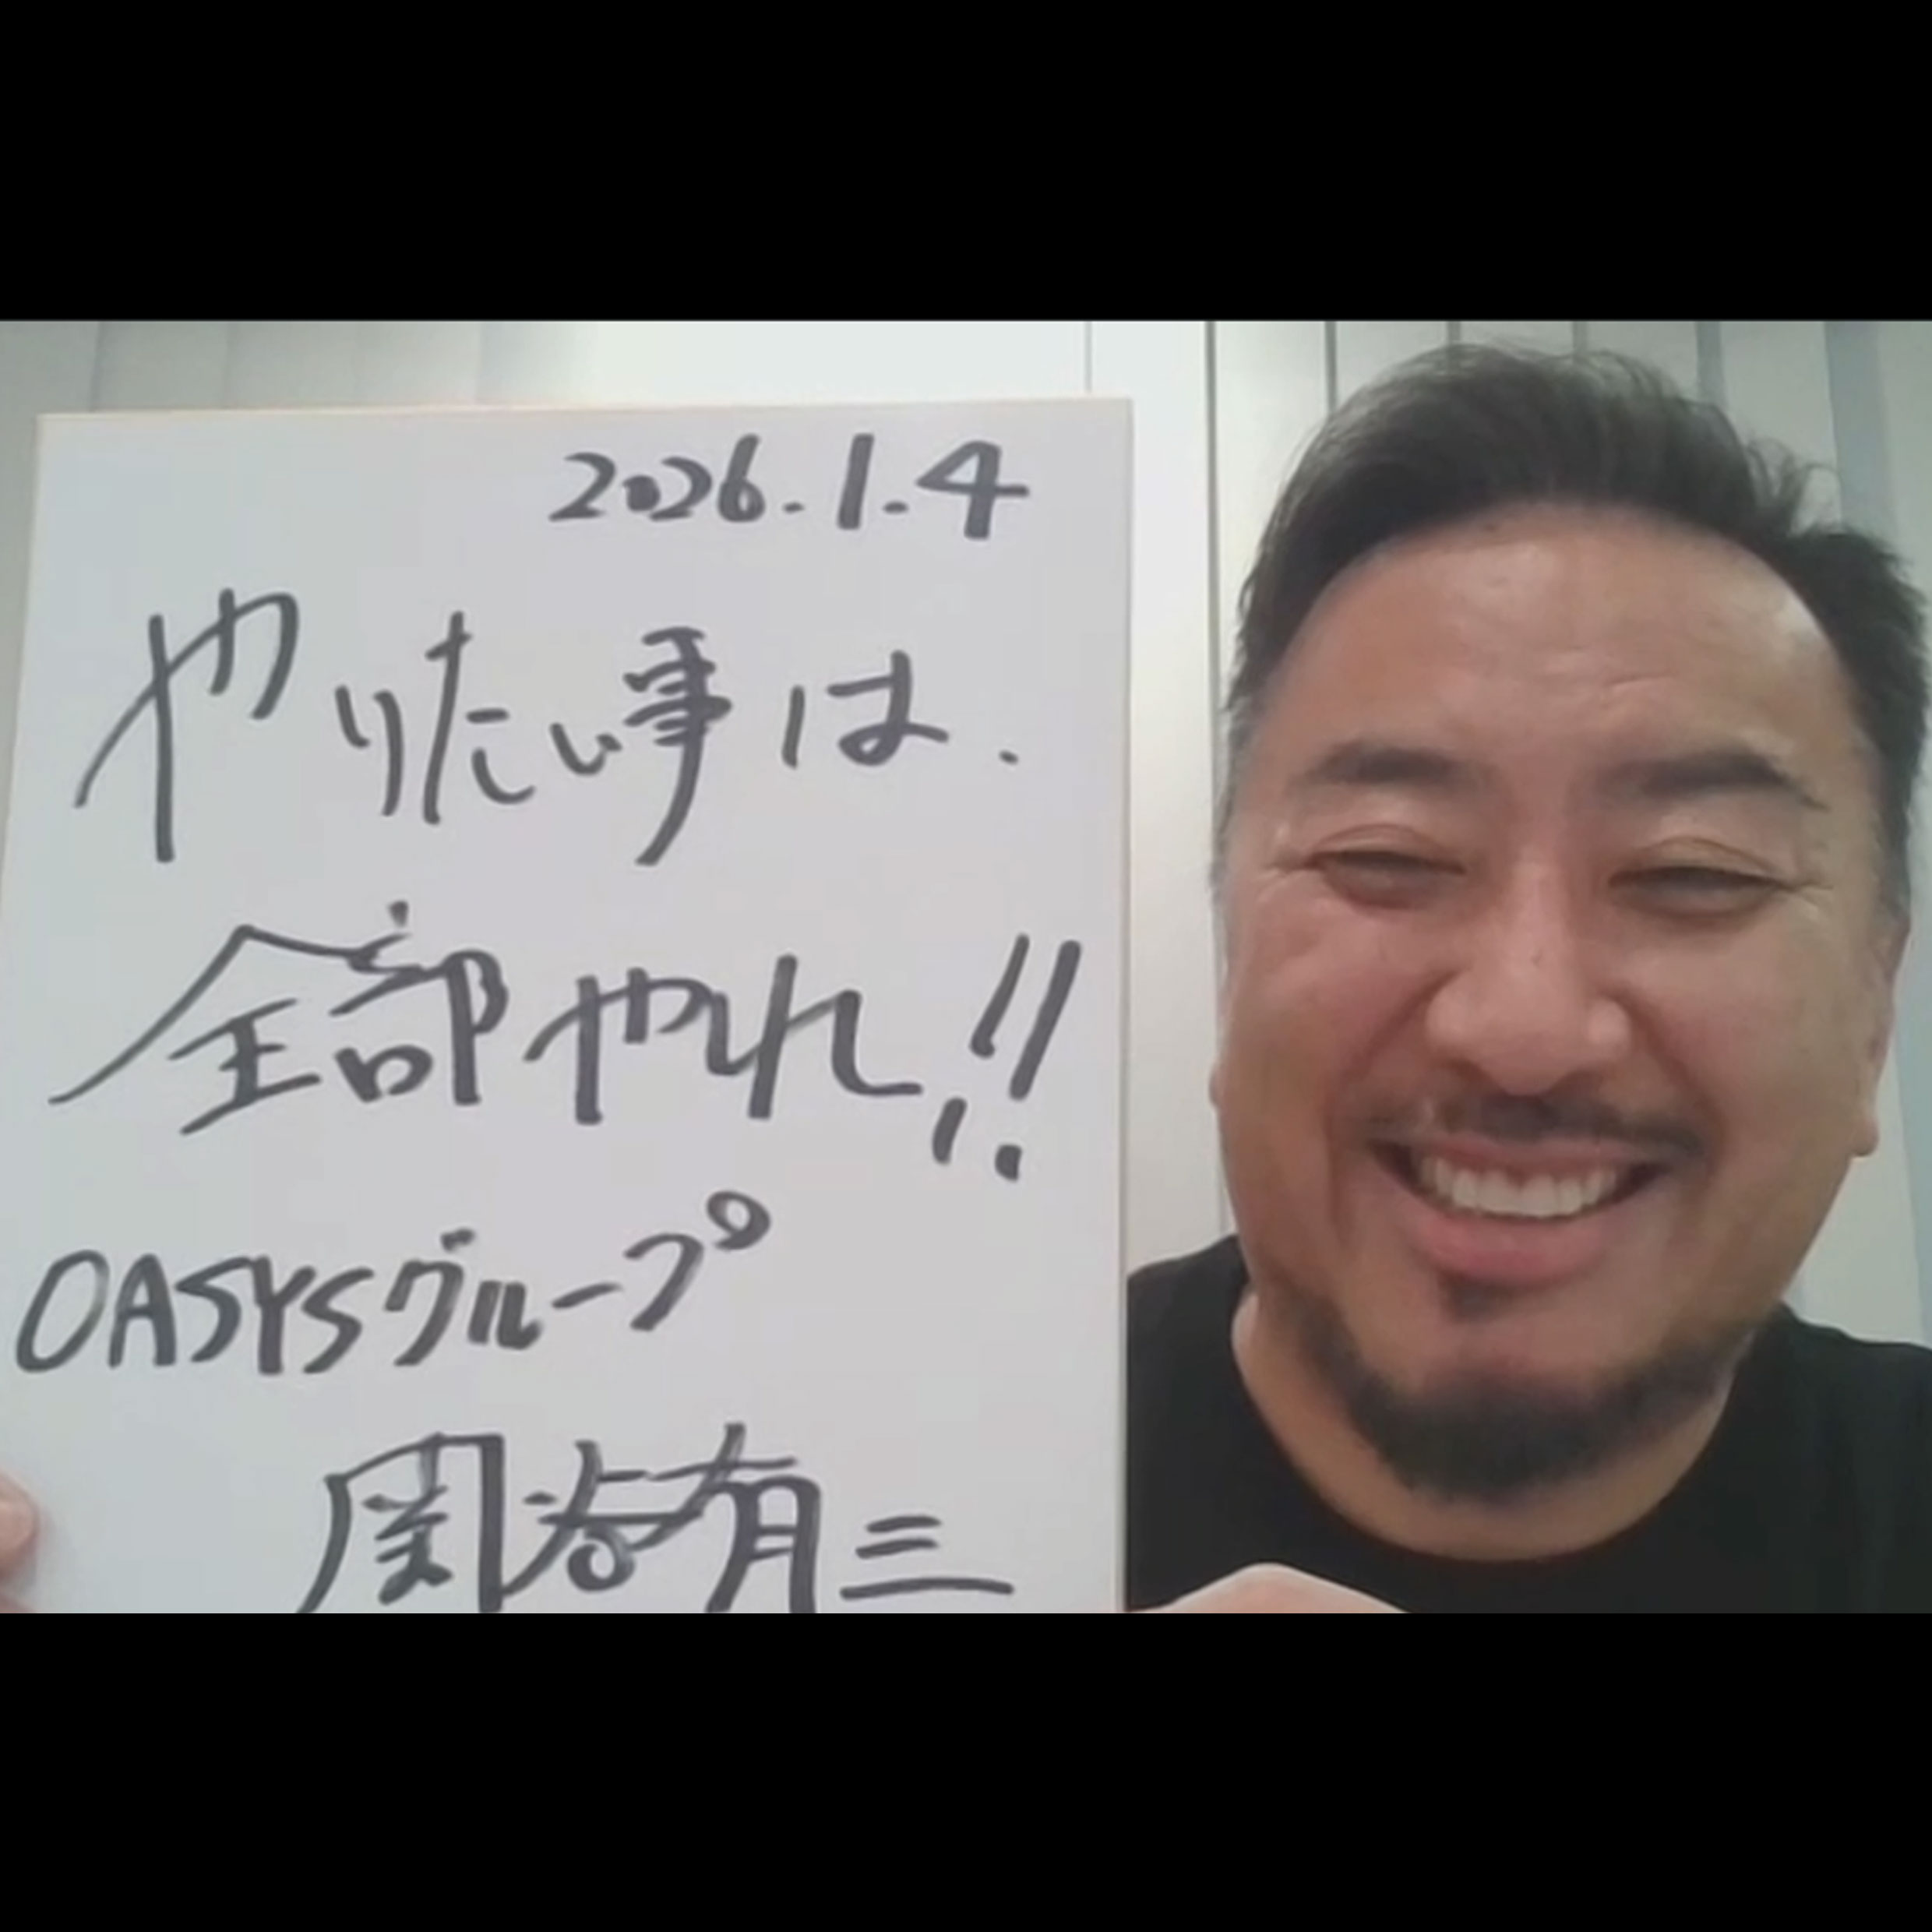 2026.1.4
やりたい事は、
全部やれ!!
OASYSグループ
有三